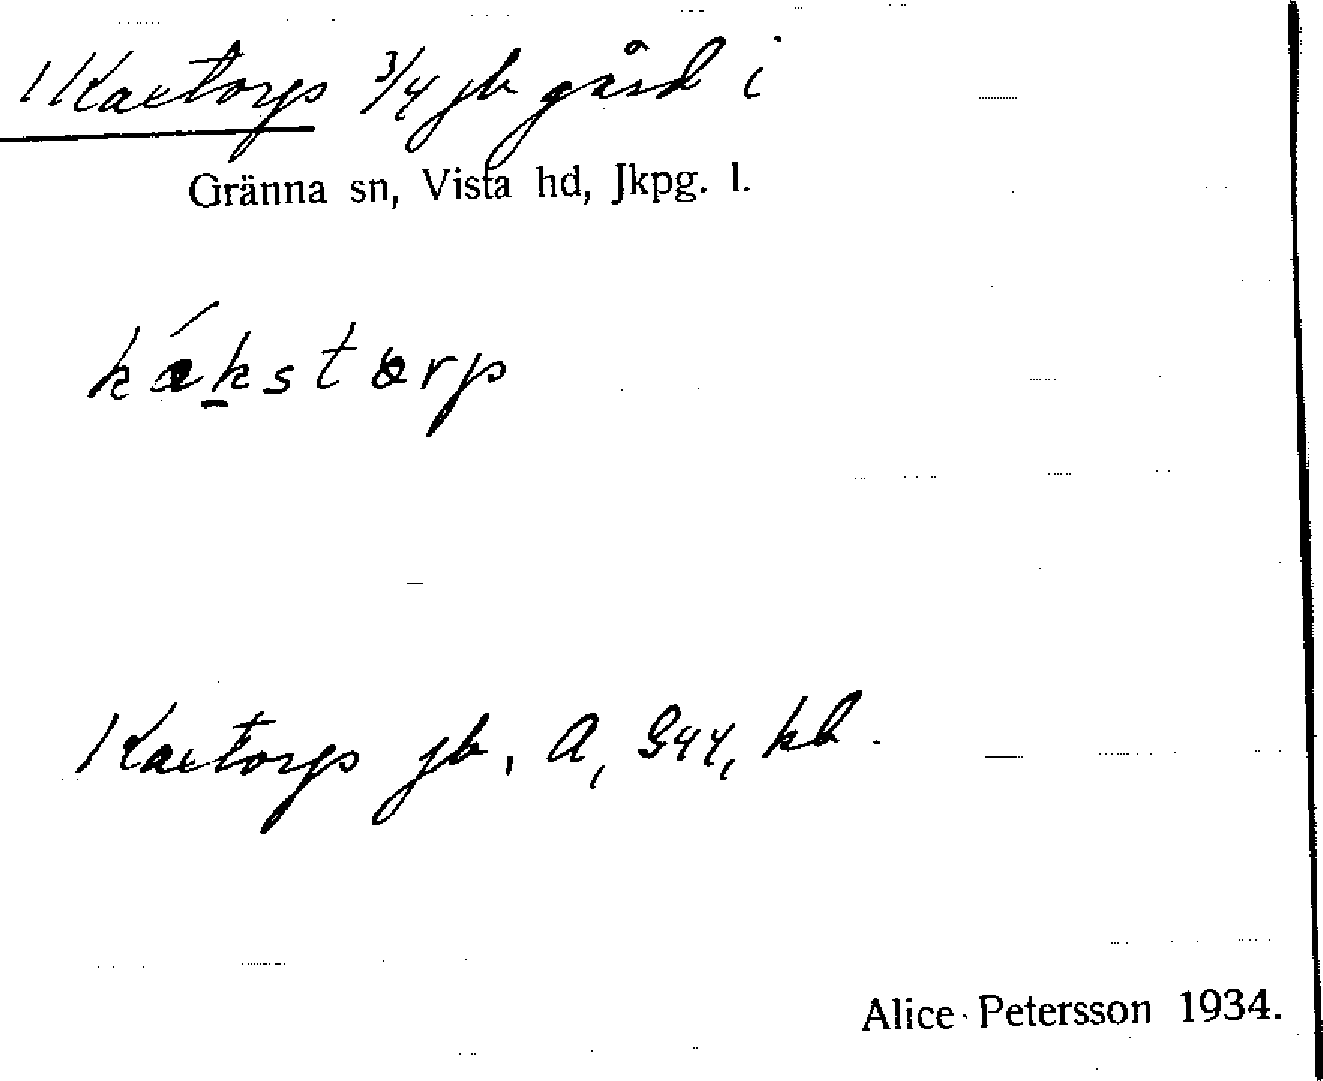 Kaxtorp 3/4 jb gård i
Gränna sn, Vista hd, Jkpg. l.
kákstorp
Kaxtorp jb, A, Gyy, kb.
Alice Petersson 1934.